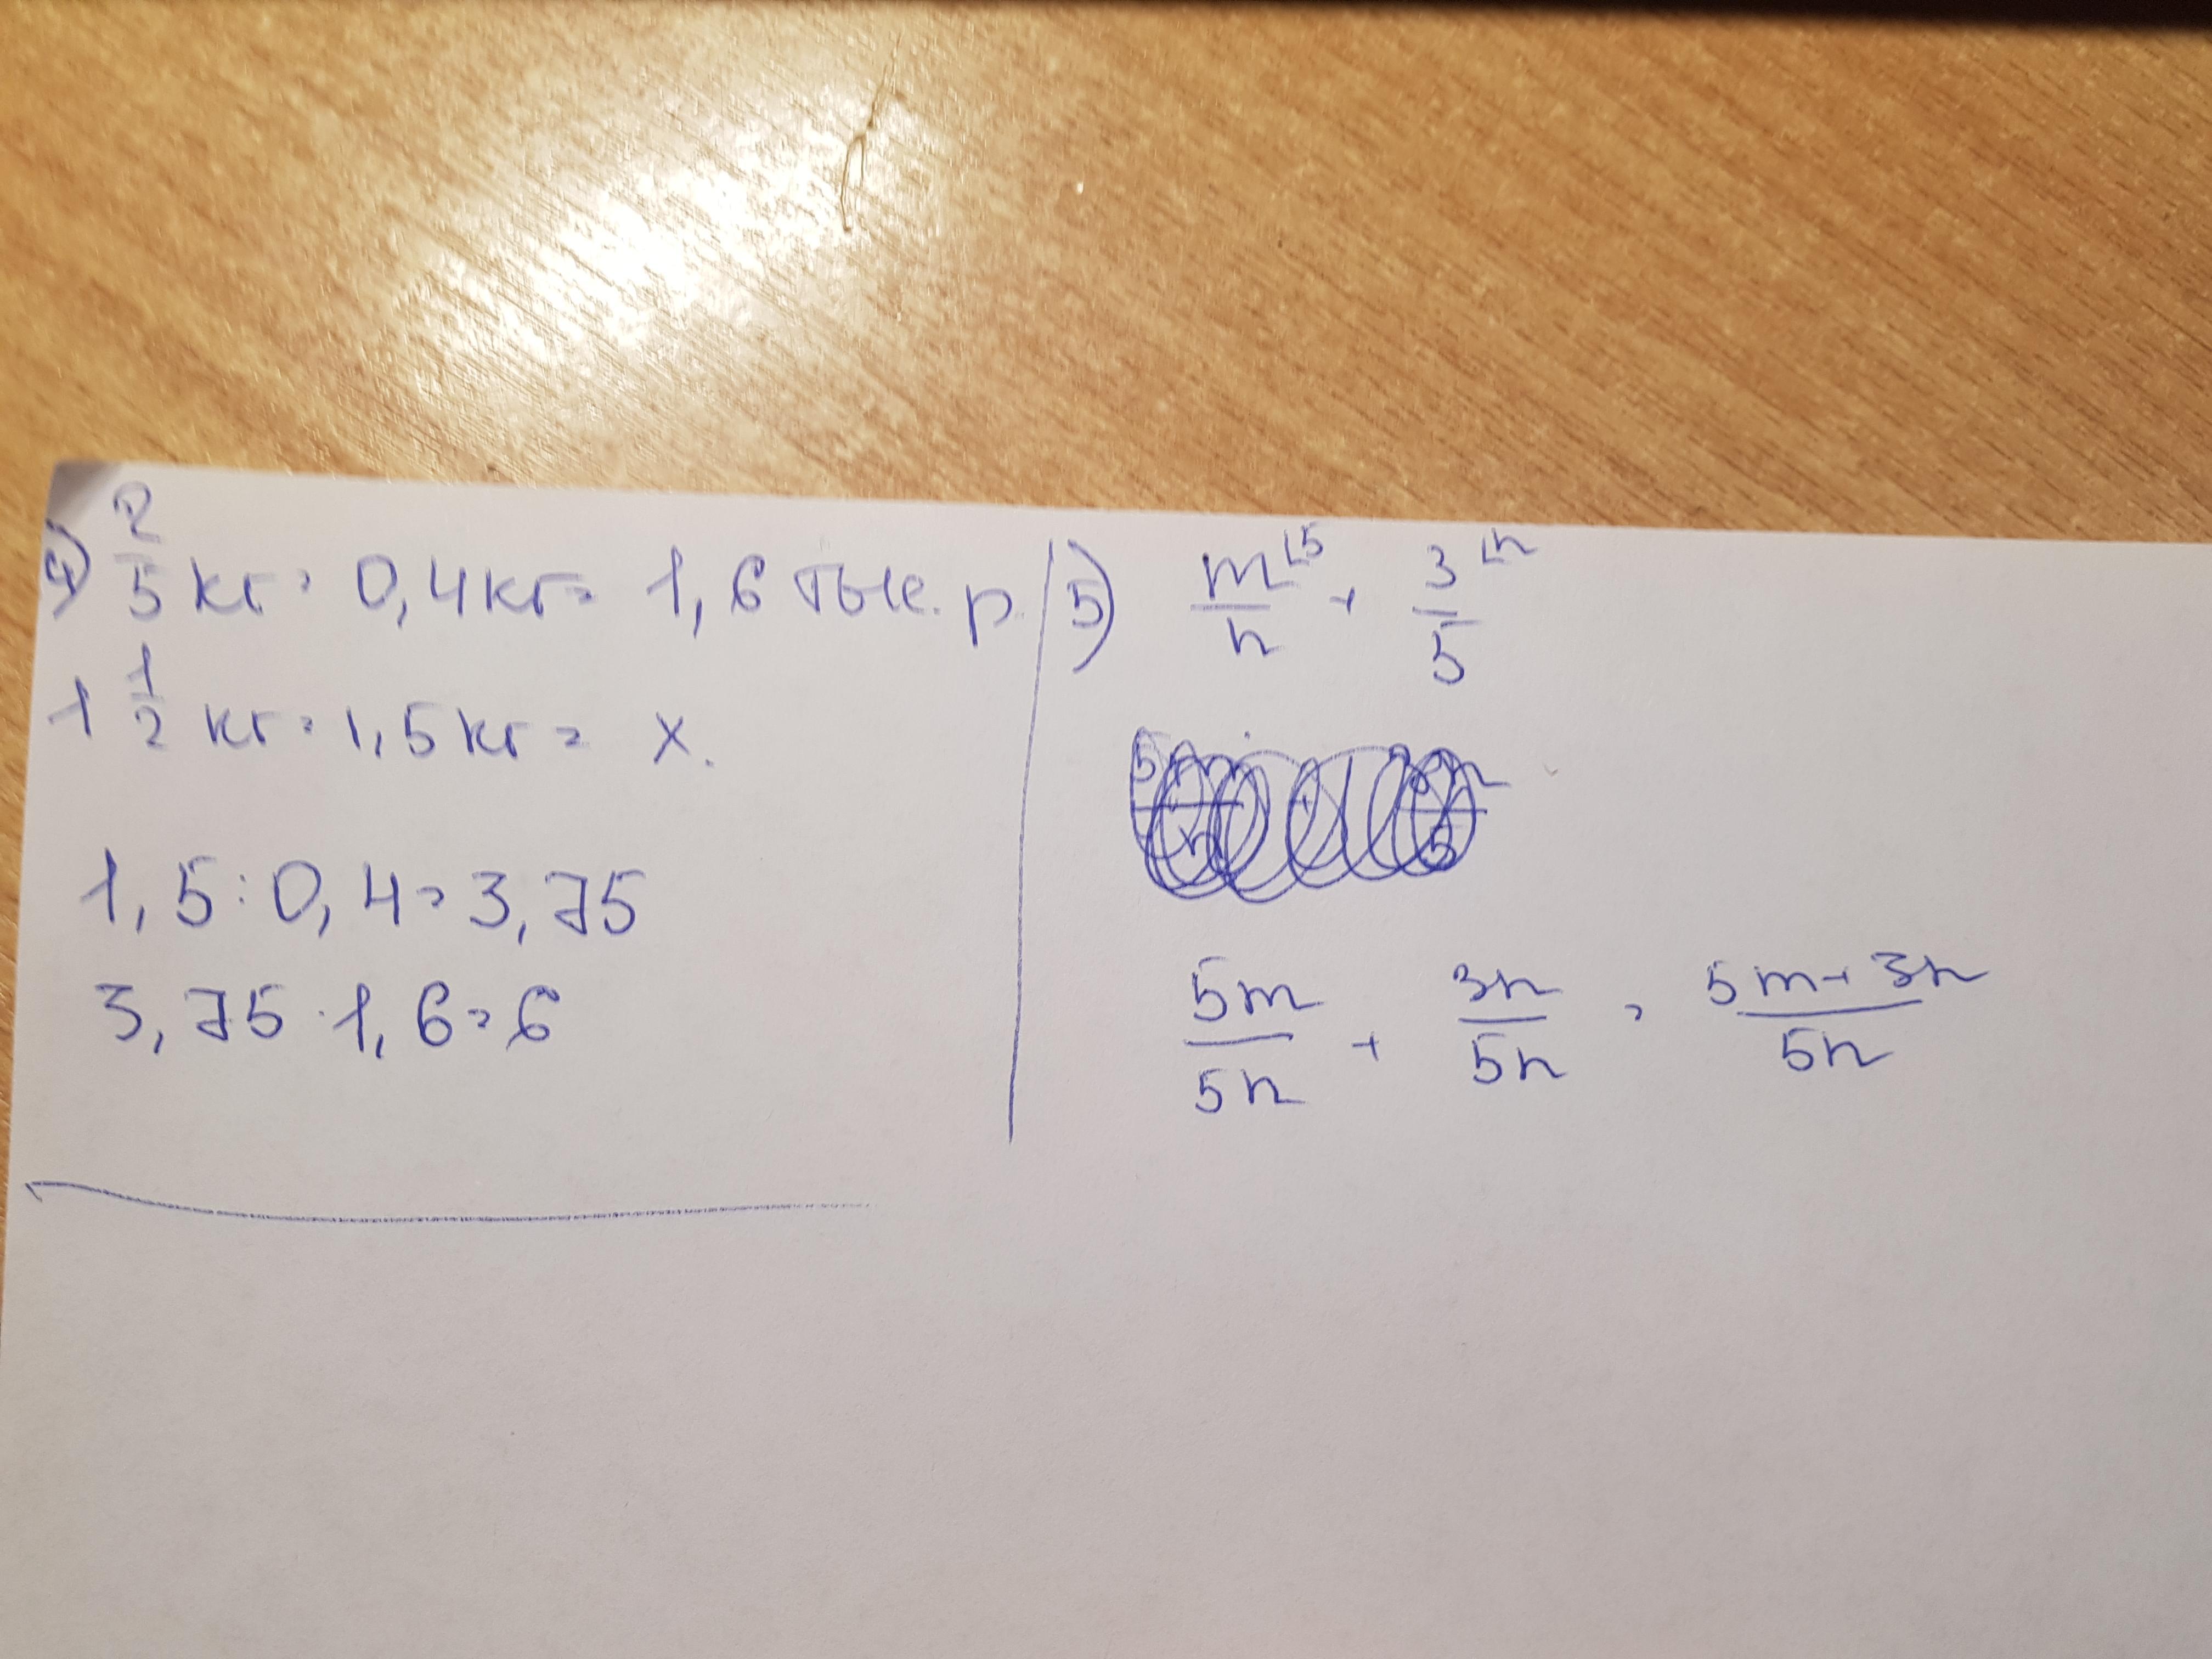 4) 2/5 кг = 0,4 кг = 1,6 тыс. р.
1 1/2 кг = 1,5 кг = x.
1,5 : 0,4 = 3,75
3,75 · 1,6 = 6
5) m/n + 3/5
5m/5n + 3n/5n = 5m + 3n/5n